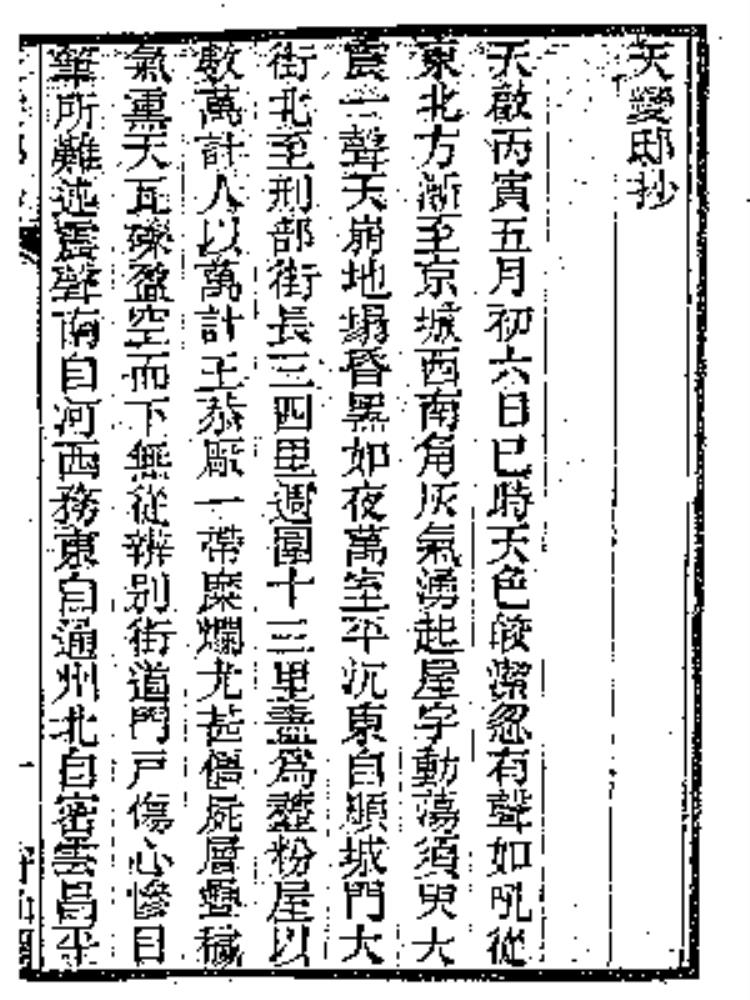 天變邸抄
天啟丙寅五月初六日巳時天色皎潔忽有聲如吼從
東北方漸至京城西南角灰氣湧起屋宇動蕩須臾大
震一聲天崩地塌昏黑如夜萬室平沉東自順城門大
街北至刑部街長三四里週圍十三里盡爲虀粉屋以
數萬計人以萬計王恭厰一帶糜爛尤甚僵屍層疊穢
氣熏天瓦礫盈空而下無從辨別街道門戸傷心慘目
筆所難述震聲南自河西務東自通州北自密雲昌平